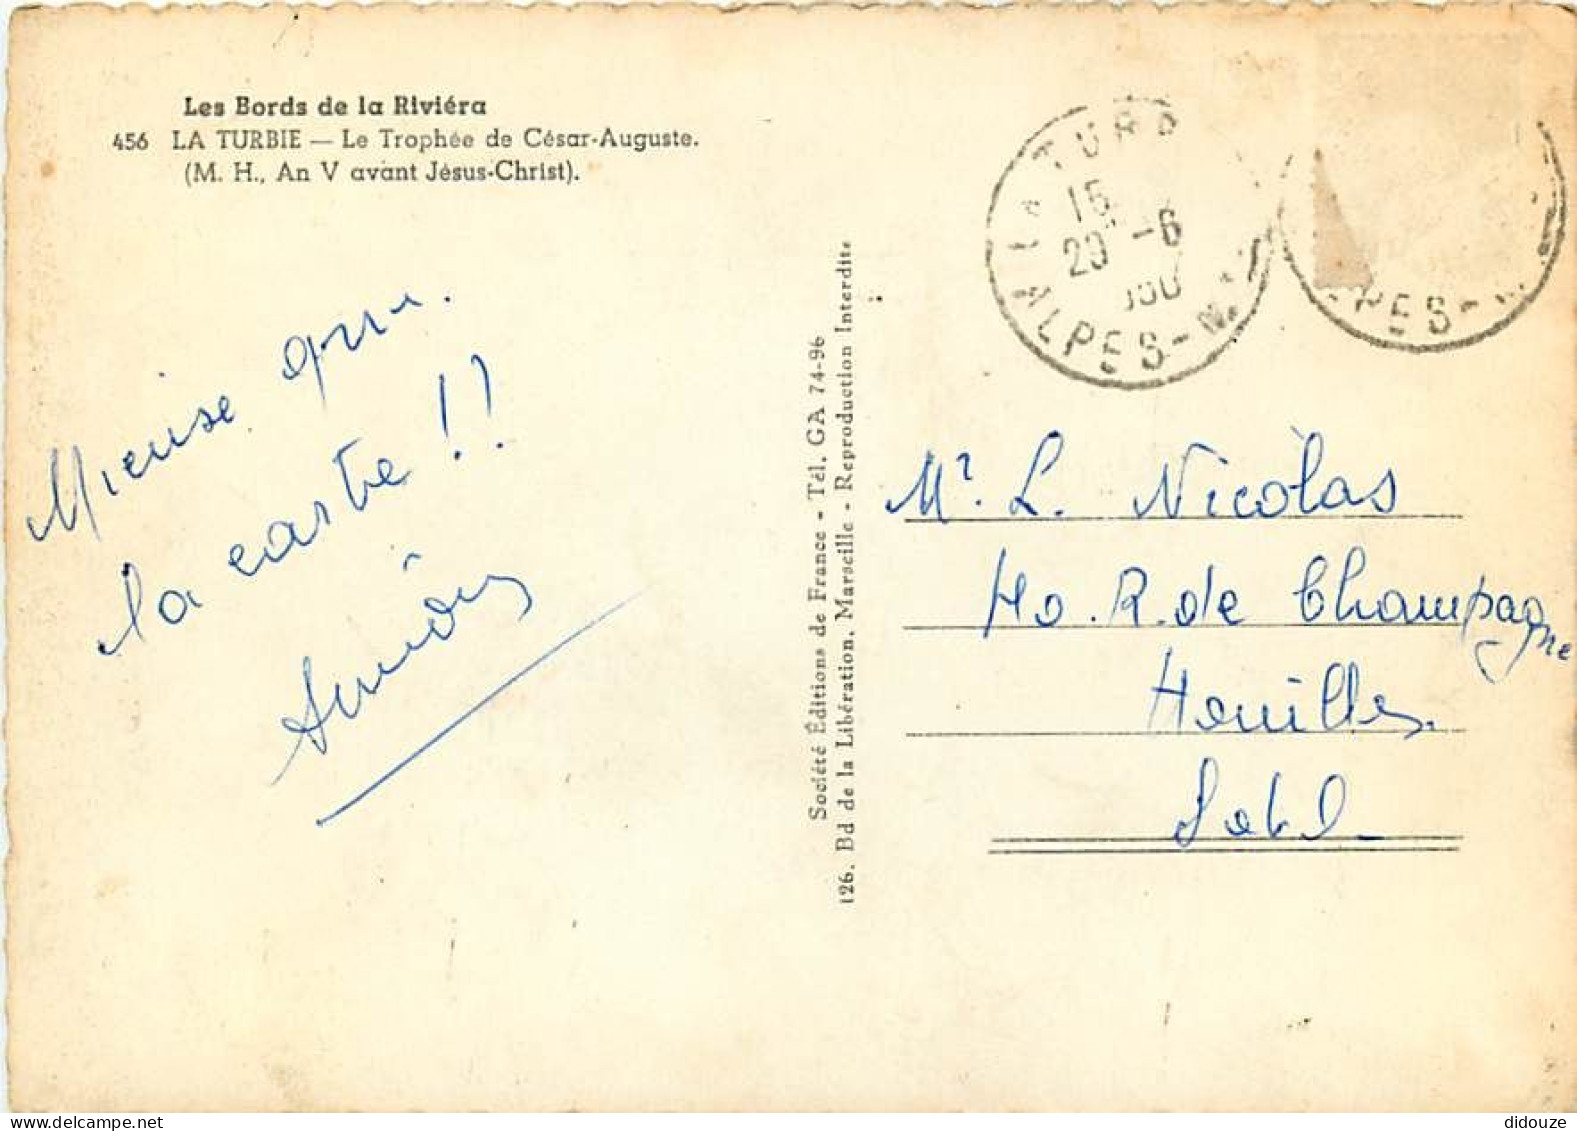 Les Bords de la Riviéra
456 LA TURBIE — Le Trophée de César-Auguste.
(M. H., An V avant Jésus-Christ).
Mieux que
la carte !!
Société Éditions de France - Tél. GA 74-96
126, Bd de la Libération, Marseille - Reproduction Interdite
La TURB
15
20 -6
ALPES-M
PES-
Mr. L. Nicolas
R. de Champagne
Houilles
S et O
didouze
delcampe.net